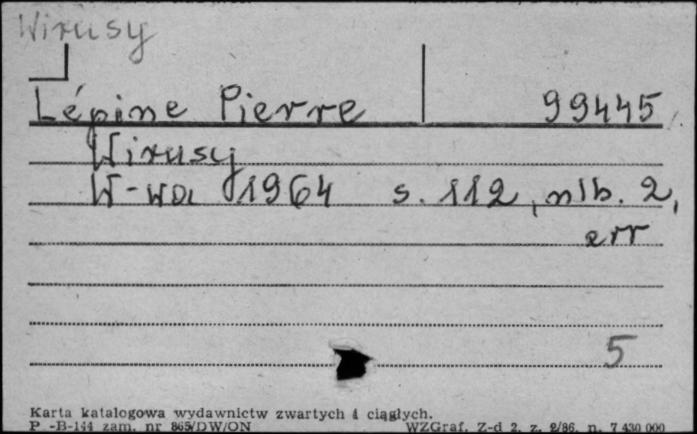 Wirusy
Lépine Pierre 99445
Wirusy
W-wa 1964 s. 112, nlb. 2,
err
5
Karta katalogowa wydawnictw zwartych i ciągłych.
P -B-144 zam. nr 865/DW/ON WZGraf. Z-d 2. z. 2/86. n. 7 430 000